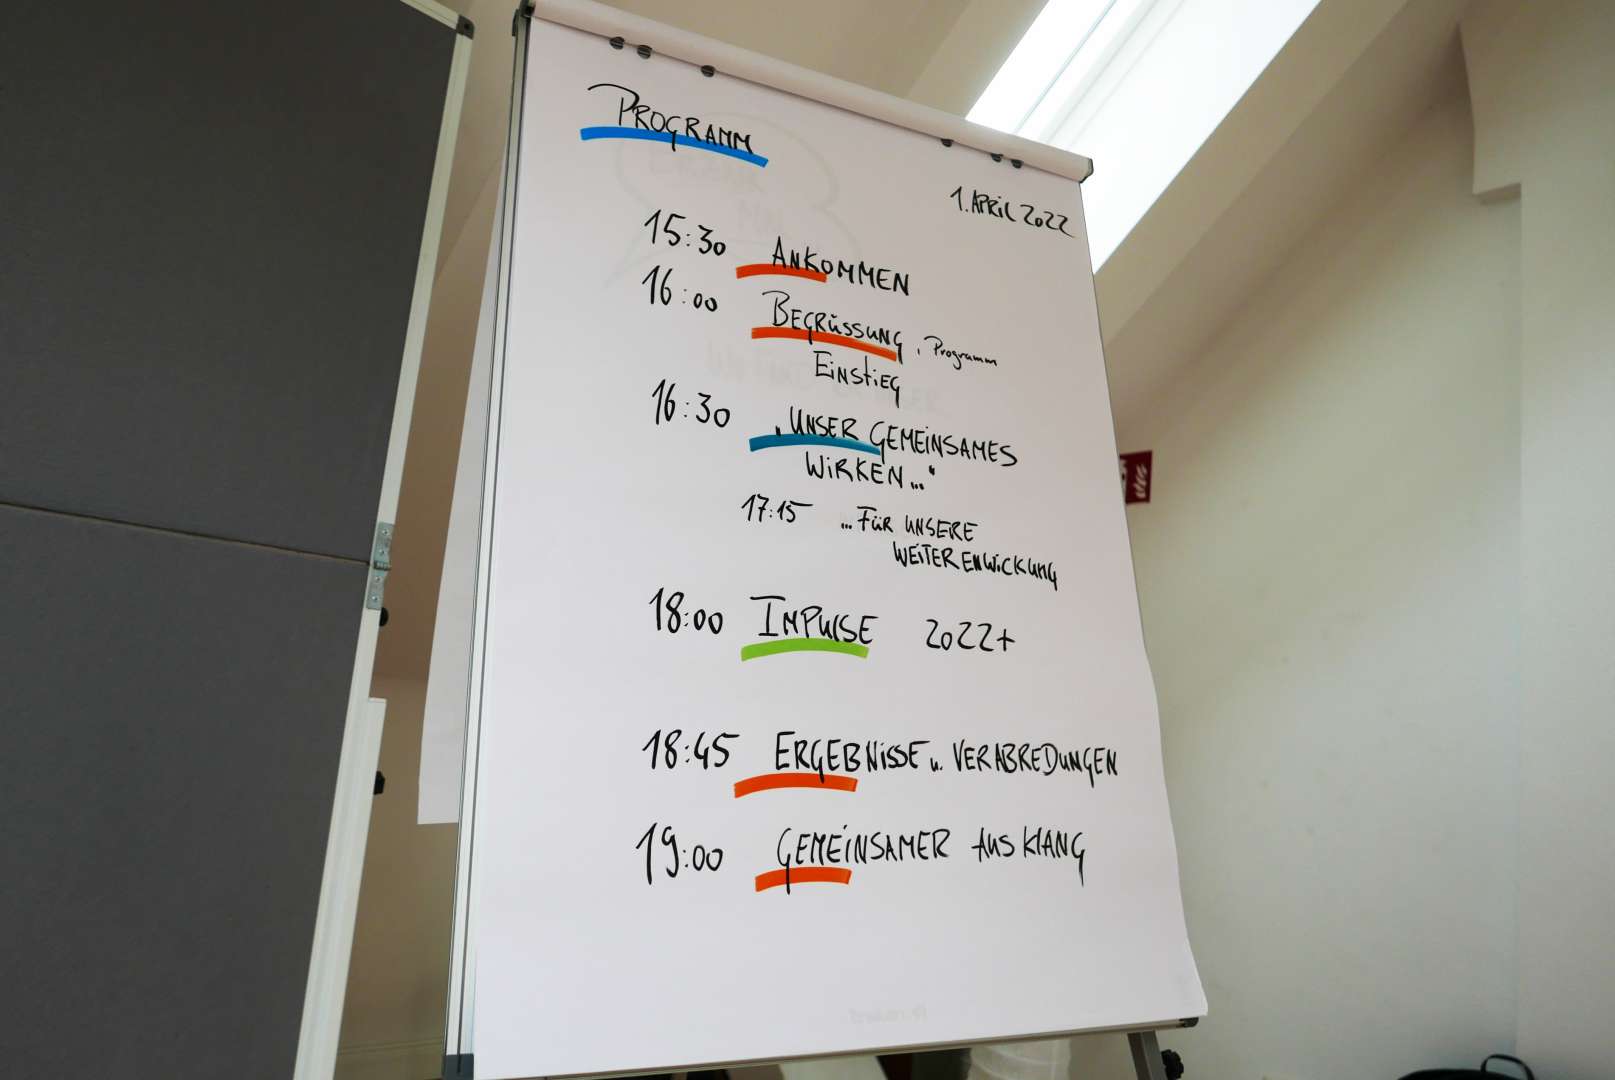 PROGRAMM
1. APRIL 2022
15:30 ANKOMMEN
16:00 BEGRÜSSUNG, Programm
EINSTIEG
16:30 „UNSER GEMEINSAMES
WIRKEN..."
17:15 ...FÜR UNSERE
WEITERENWICKUNG
18:00 IMPULSE 2022+
18:45 ERGEBNISSE u. VERABREDUNGEN
19:00 GEMEINSAMER AUSKLANG